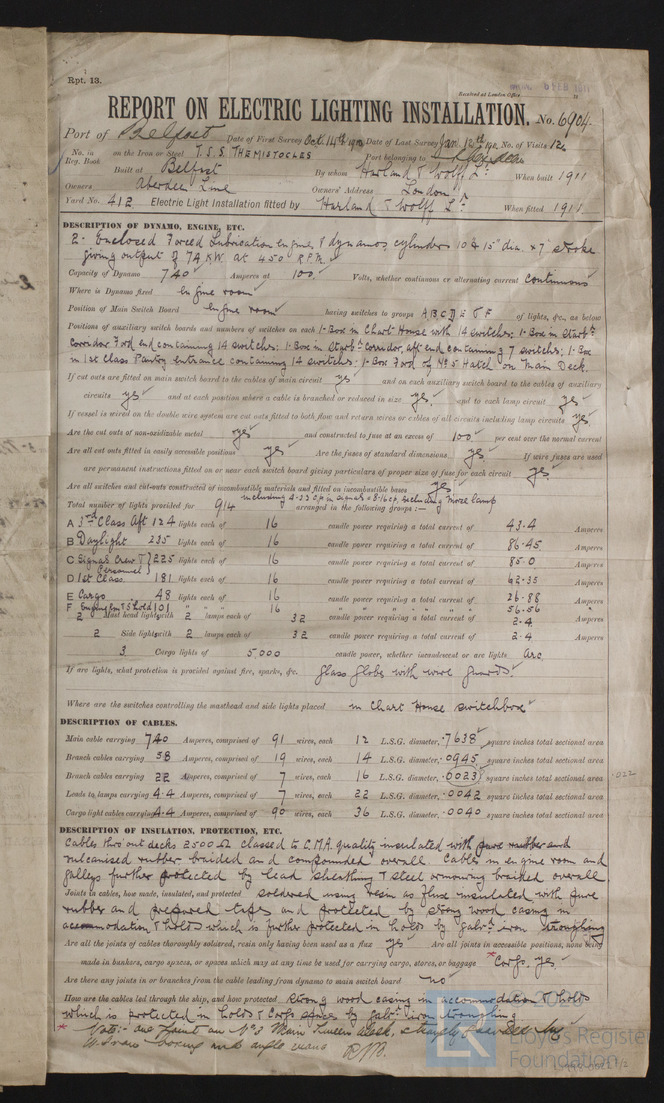 Rpt. 13.
Received at London Office
FEB 1911
REPORT ON ELECTRIC LIGHTING INSTALLATION. No. 6904
Port of Belfast Date of First Survey Oct. 14th 1910 Date of Last Survey Jan. 12th No. of Visits 12
No. in Reg. Book on the Iron or Steel T.S.S THEMISTOCLES Port belonging to Aberdeen
Built at Belfast By whom Harland & Wolff Ld. When built 1911
Owners Aberdeen Line Owners' Address London
Yard No. 412 Electric Light Installation fitted by Harland & Wolff Ld. When fitted 1911
DESCRIPTION OF DYNAMO, ENGINE, ETC.
2. Enclosed Forced Lubrication engines & dynamos, cylinders 10 & 15" dia. x 7" stroke
giving output of 74 KW. at 450 R.P.M.
Capacity of Dynamo 740 Amperes at 100 Volts, whether continuous or alternating current Continuous
Where is Dynamo fixed engine room
Position of Main Switch Board engine room having switches to groups A B C D E & F of lights, &c., as below
Positions of auxiliary switch boards and numbers of switches on each 1-Box in Chart House with 14 switches; 1-Box in Starbd.
Corridor Ford end containing 14 switches; 1-Box in Starbd. Corridor, aft end containing 7 switches; 1-Box
in 1st Class Pantry entrance containing 14 switches; 1-Box Ford of No 5 Hatch on Main Deck.
If cut outs are fitted on main switch board to the cables of main circuit yes and on each auxiliary switch board to the cables of auxiliary
circuits yes and at each position where a cable is branched or reduced in size yes and to each lamp circuit yes
If vessel is wired on the double wire system are cut outs fitted to both flow and return wires or cables of all circuits including lamp circuits yes
Are the cut outs of non-oxidizable metal yes and constructed to fuse at an excess of 100 per cent over the normal current
Are all cut outs fitted in easily accessible positions yes Are the fuses of standard dimensions yes If wire fuses are used
are permanent instructions fitted on or near each switch board giving particulars of proper size of fuse for each circuit yes
Are all switches and cut-outs constructed of incombustible materials and fitted on incombustible bases yes
Total number of lights provided for 914 arranged in the following groups:—
A 3rd Class Aft 124 lights each of 16 candle power requiring a total current of 43.4 Amperes
B Daylight 235 lights each of 16 candle power requiring a total current of 86.45 Amperes
C Signal Crew & Personnel 225 lights each of 16 candle power requiring a total current of 85.0 Amperes
D 1st Class 181 lights each of 16 candle power requiring a total current of 62.35 Amperes
E Cargo 48 lights each of 16 candle power requiring a total current of 26.88 Amperes
F Engine rm & Shold 101 " " " 16 " " " " " " 56.56 "
2 Mast head light with 2 lamps each of 32 candle power requiring a total current of 2.4 Amperes
2 Side light with 2 lamps each of 32 candle power requiring a total current of 2.4 Amperes
3 Cargo lights of 5000 candle power, whether incandescent or arc lights Arc
If arc lights, what protection is provided against fire, sparks, &c. Glass Globes with wire guards.
Where are the switches controlling the masthead and side lights placed in Chart House switchbox
DESCRIPTION OF CABLES.
Main cable carrying 740 Amperes, comprised of 91 wires, each 12 L.S.G. diameter, .7638 square inches total sectional area
Branch cables carrying 58 Amperes, comprised of 19 wires, each 14 L.S.G. diameter, .0945 square inches total sectional area
Branch cables carrying 22 Amperes, comprised of 7 wires, each 16 L.S.G. diameter, .0023 square inches total sectional area .022
Leads to lamps carrying 4.4 Amperes, comprised of 7 wires, each 22 L.S.G. diameter, .0042 square inches total sectional area
Cargo light cables carrying 4.4 Amperes, comprised of 90 wires, each 36 L.S.G. diameter, .0040 square inches total sectional area
DESCRIPTION OF INSULATION, PROTECTION, ETC.
Cables thro'out decks 2500 Ω classed to C.M.A. quality insulated with pure rubber and
vulcanised rubber braided and compounded overall. Cables in engine room and
galleys further protected by lead sheathing & steel armouring braided overall.
Joints in cables, how made, insulated, and protected soldered using resin as flux insulated with pure
rubber and prepared tapes and protected by strong wood casing in
accommodation & holds which is further protected in holds by galvd. iron troughing
Are all the joints of cables thoroughly soldered, resin only having been used as a flux yes Are all joints in accessible positions, none being
made in bunkers, cargo spaces, or spaces which may at any time be used for carrying cargo, stores, or baggage *Cargo, yes
Are there any joints in or branches from the cable leading from dynamo to main switch board no
How are the cables led through the ship, and how protected strong wood casing in accommodation & holds
which is protected in holds & Cargo space by galvd. iron troughing
* Note:- one joint in No 3 Main Tween deck,
boxing and angle irons R.J.B.
© 2021
LR
Lloyd's Register
Foundation